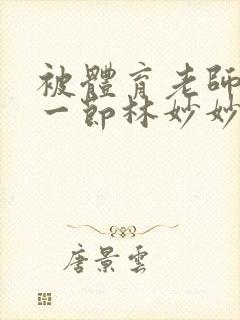 被體育老師
一節林妙妙
唐景雲